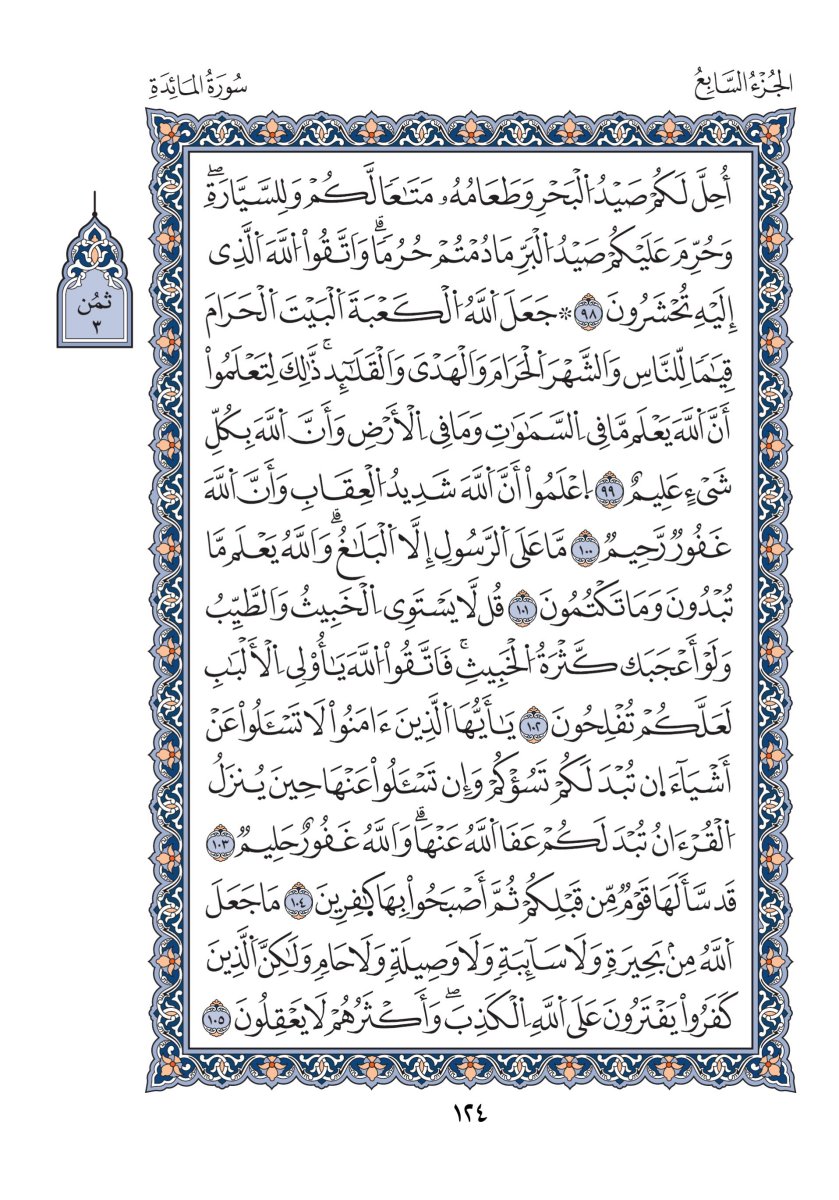 الجُزْءُ السَّابِعُ
سُورَةُ المَائِدَةِ
أُحِلَّ لَكُمْ صَيْدُ اُ۬لْبَحْرِ وَطَعَامُهُۥ مَتَٰعاٗ لَّكُمْ وَلِلسَّيَّارَةِۖ
وَحُرِّمَ عَلَيْكُمْ صَيْدُ اُ۬لْبَرِّ مَا دُمْتُمْ حُرُماٗۗ وَاتَّقُواْ اُ۬للَّهَ اَ۬لَّذِى
إِلَيْهِ تُحْشَرُونَ ٩٨ ۞ جَعَلَ اَ۬للَّهُ اُ۬لْكَعْبَةَ اَ۬لْبَيْتَ اَ۬لْحَرَامَ
ثمُن
٣
قِيَٰماٗ لِّلنَّاسِ وَالشَّهْرَ اَ۬لْحَرَامَ وَالْهَدْىَ وَالْقَلَٰٓئِدَۚ ذَٰلِكَ لِتَعْلَمُواْ
أَنَّ اَ۬للَّهَ يَعْلَم مَّا فِى اِ۬لسَّمَٰوَٰتِ وَمَا فِى اِ۬لْأَرْضِ وَأَنَّ اَ۬للَّهَ بِكُلِّ
شَىْءٍ عَلِيمٌ ٩٩ اِ۪عْلَمُواْ أَنَّ اَ۬للَّهَ شَدِيدُ اُ۬لْعِقَابِ وَأَنَّ اَ۬للَّهَ
غَفُورٌ رَّحِيمٌ ١٠٠ مَّا عَلَى اَ۬لرَّسُولِ إِلَّا اَ۬لْبَلَٰغُۗ وَاللَّهُ يَعْلَم مَّا
تُبْدُونَ وَمَا تَكْتُمُونَ ١٠١ قُل لَّا يَسْتَوِى اِ۬لْخَبِيثُ وَالطَّيِّبُ
وَلَوْ أَعْجَبَك كَّثْرَةُ اُ۬لْخَبِيثِۚ فَاتَّقُواْ اُ۬للَّهَ يَٰأُوْلِى اِ۬لْأَلْبَٰبِ
لَعَلَّكُمْ تُفْلِحُونَ ١٠٢ يَٰأَيُّهَا اَ۬لَّذِينَ ءَامَنُواْ لَا تَسْـَٔلُواْ عَنْ
أَشْيَآءَ ا۪ن تُبْدَ لَكُمْ تَسُؤْكُمْ وَإِن تَسْـَٔلُواْ عَنْهَا حِينَ يُنزَلُ
اُ۬لْقُرْءَانُ تُبْدَ لَكُمْ عَفَا اَ۬للَّهُ عَنْهَاۗ وَاللَّهُ غَفُورٌ حَلِيمٌ ١٠٣
قَد سَّأَلَهَا قَوْمٌ مِّن قَبْلِكُمْ ثُمَّ أَصْبَحُواْ بِهَا كٰ۪فِرِينَ ١٠٤ مَا جَعَلَ
اَ۬للَّهُ مِنۢ بَحِيرَةٖ وَلَا سَآئِبَةٖ وَلَا وَصِيلَةٖ وَلَا حَامٖ وَلَٰكِنَّ اَ۬لَّذِينَ
كَفَرُواْ يَفْتَرُونَ عَلَى اَ۬للَّهِ اِ۬لْكَذِبَۖ وَأَكْثَرُهُمْ لَا يَعْقِلُونَ ١٠٥
١٢٤